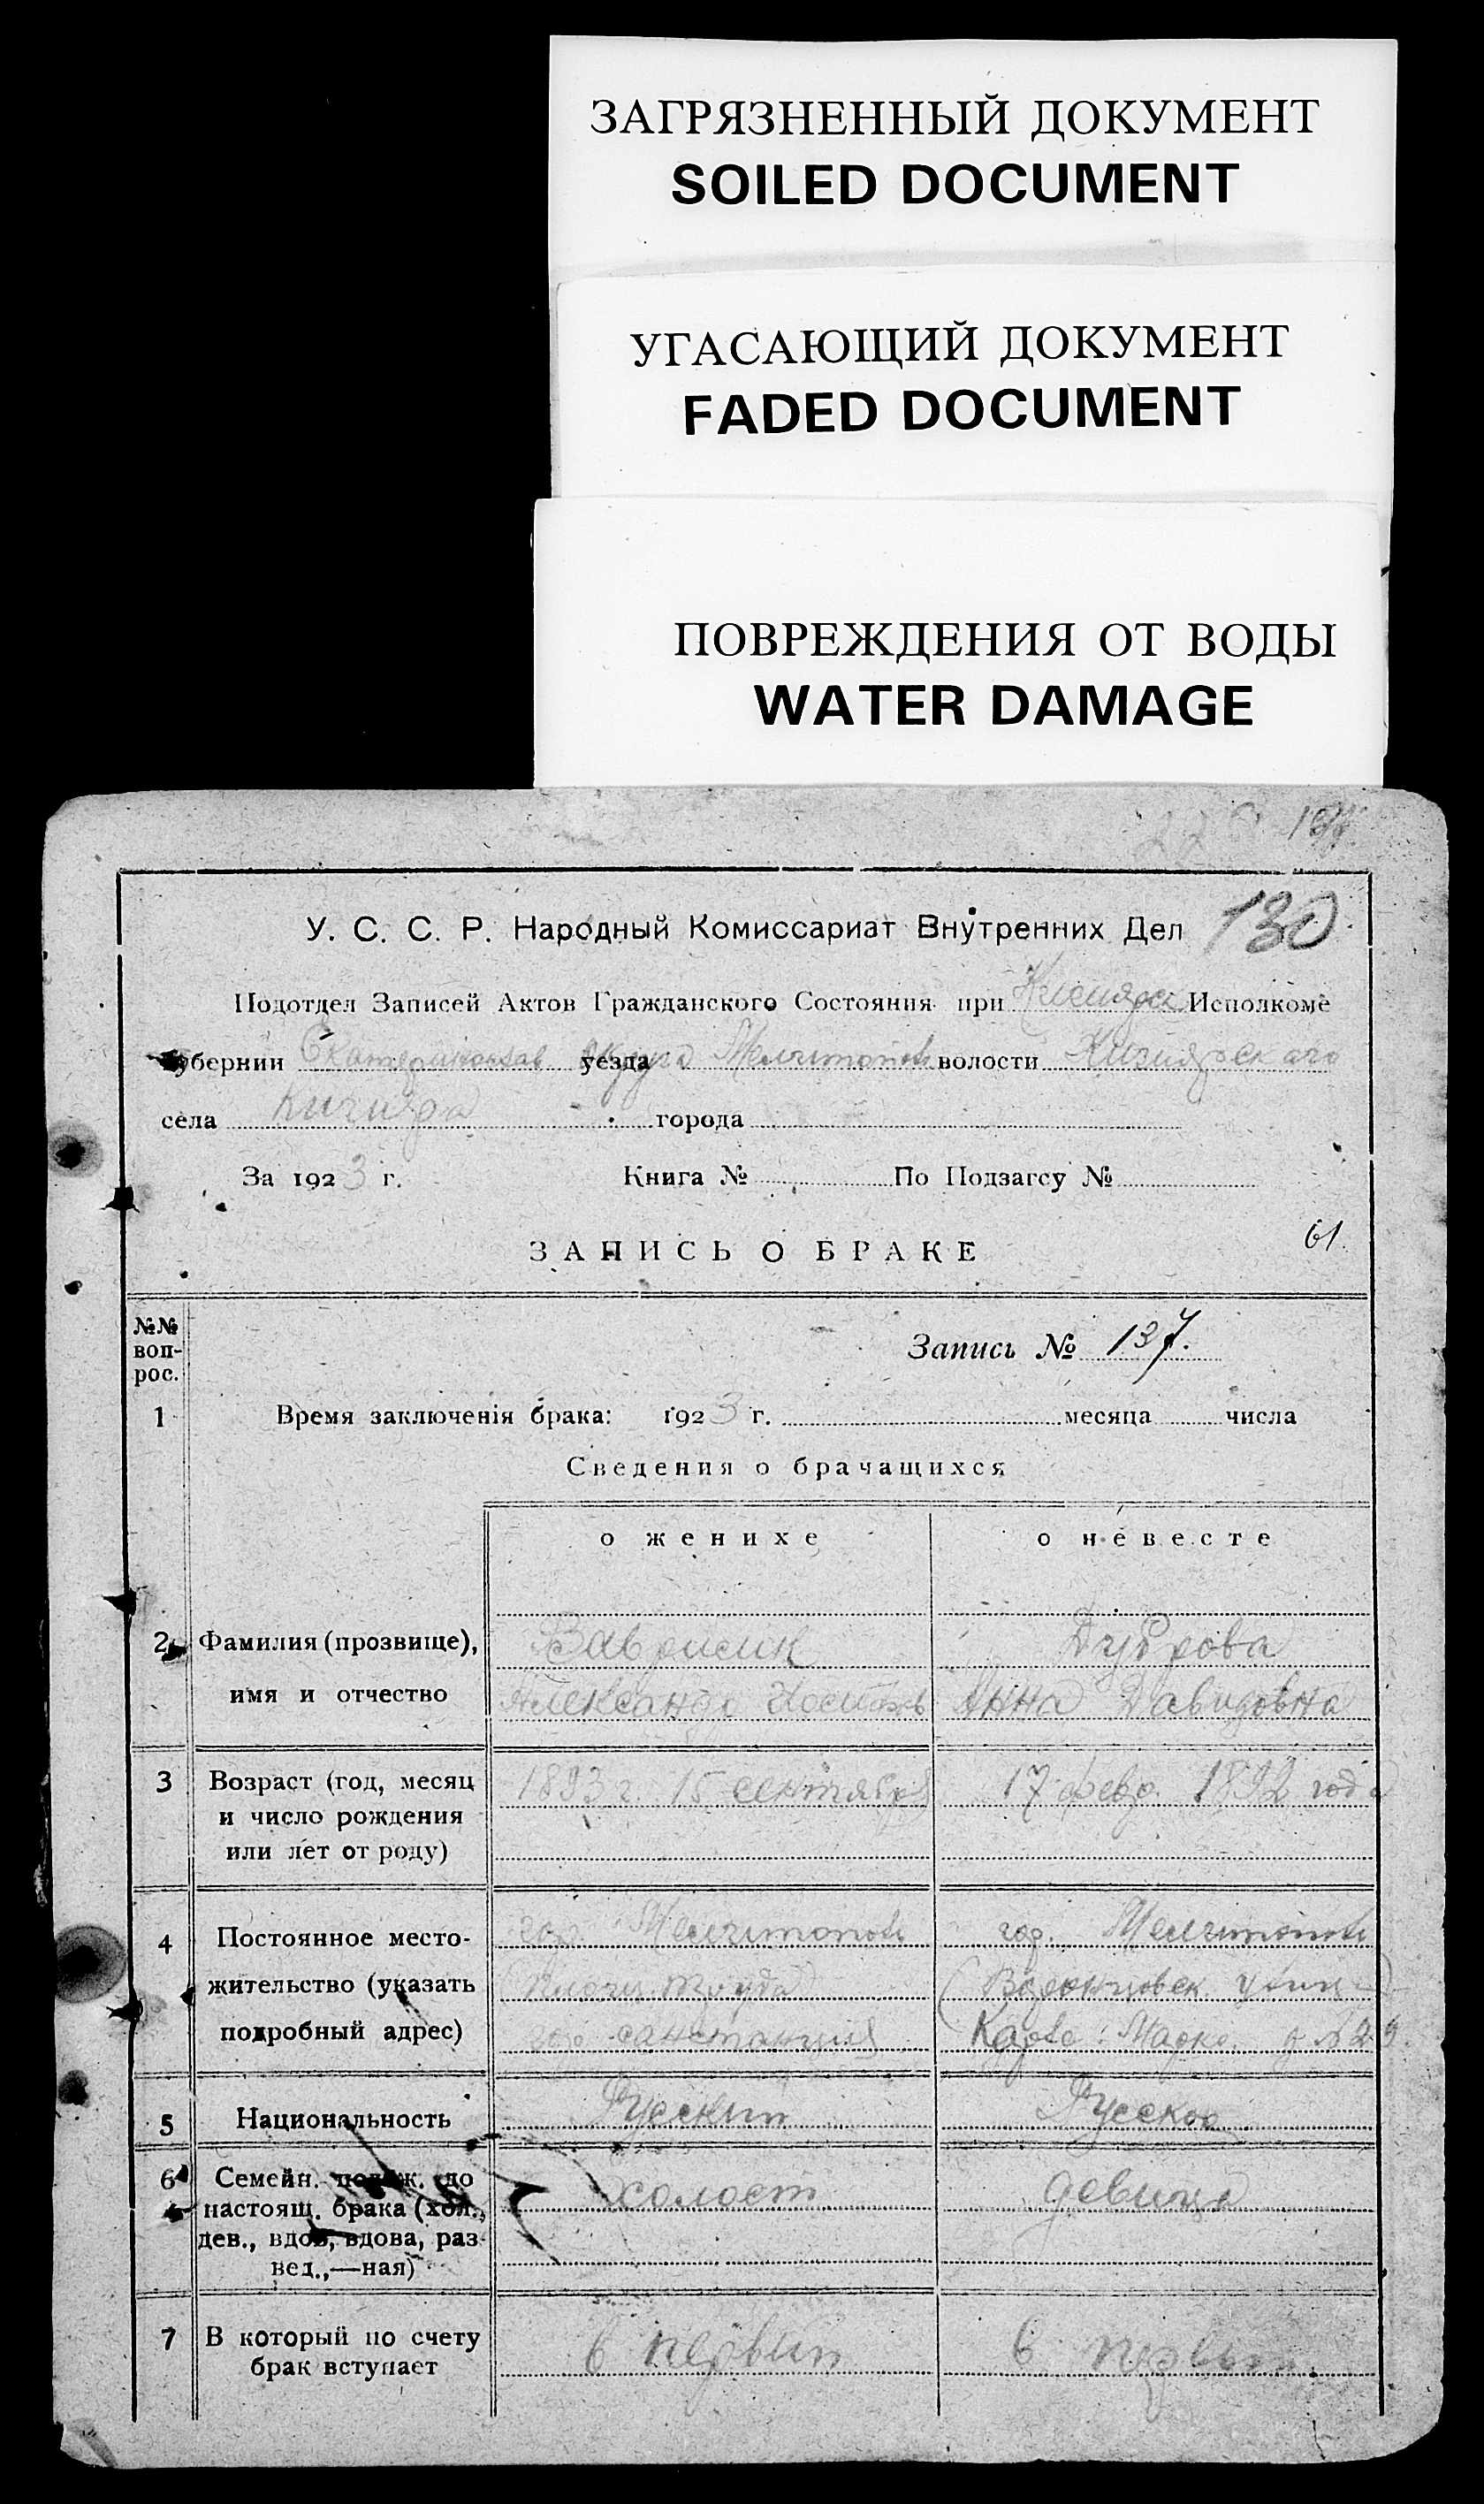 ЗАГРЯЗНЕННЫЙ ДОКУМЕНТ
SOILED DOCUMENT
УГАСАЮЩИЙ ДОКУМЕНТ
FADED DOCUMENT
ПОВРЕЖДЕНИЯ ОТ ВОДЫ
WATER DAMAGE
130
У. С. С. Р. Народный Комиссариат Внутренних Дел
Подотдел Записей Актов Гражданского Состояния при Исполкоме
губернии Екатеринослав уезда округа Мелитополь волости
села города
За 1923 г. Книга № По Подзагсу №
ЗАПИСЬ О БРАКЕ 61
№№ вопрос.
Запись № 137.
1 Время заключенія брака: 1923 г. месяца числа
Сведения о брачащихся
о женихе о невесте
2 Фамилия (прозвище), Дуброва
имя и отчество Александр Иосифов Анна Давидовна
3 Возраст (год, месяц 1893 г. 15 сентября 17 февр. 1892 года
и число рождения
или лет от роду)
4 Постоянное место- гор. Мелитополь гор. Мелитополь
жительство (указать
подробный адрес) санстанция Карла Маркс. д № 29.
5 Национальность Русский Русская
6 Семейн. полож. до холост девица
настоящ. брака (хол.,
дев., вдов, вдова, раз-
вед.,—ная)
7 В который по счету в первый в первый
брак вступает